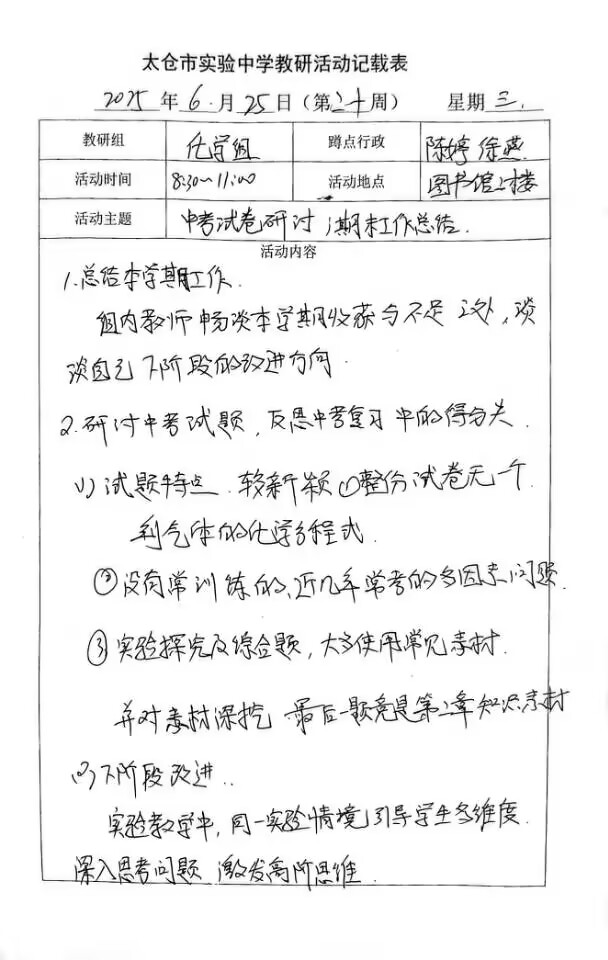 太仓市实验中学教研活动记载表
2025 年 6 月 25 日（第二十周） 星期 三.
教研组 化学组 蹲点行政 陈婷 徐燕
活动时间 8:30~11:00 活动地点 图书馆二楼
活动主题 中考试卷研讨；期末工作总结.
活动内容
1.总结本学期工作.
组内教师畅谈本学期收获与不足之处，谈
谈自己下阶段的改进方向.
2.研讨中考试题，反思中考复习中的得与失.
(1)试题特点.较新颖①整份试卷无一个
制气体的化学方程式.
②没有常训练的、近几年常考的多因素问题.
③实验探究及综合题，大多使用常见素材.
并对素材深挖 最后一题竟是第二章知识素材
(2)下阶段改进..
实验教学中，同一实验情境引导学生多维度.
深入思考问题 激发高阶思维